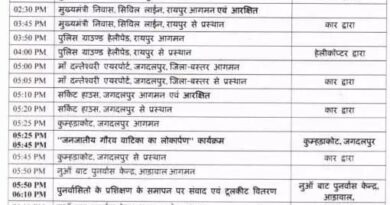 02:30 PM मुख्यमंत्री निवास, सिविल लाईन, रायपुर आगमन एवं आरक्षित
03:45 PM मुख्यमंत्री निवास, सिविल लाईन, रायपुर से प्रस्थान कार द्वारा
03:50 PM पुलिस ग्राउण्ड हेलीपेड, रायपुर आगमन
04:00 PM पुलिस ग्राउण्ड हेलीपेड, रायपुर से प्रस्थान हेलीकॉप्टर द्वारा
05:00 PM माँ दन्तेश्वरी एयरपोर्ट, जगदलपुर, जिला-बस्तर आगमन
05:05 PM माँ दन्तेश्वरी एयरपोर्ट, जगदलपुर, जिला-बस्तर से प्रस्थान कार द्वारा
05:10 PM सर्किट हाउस, जगदलपुर आगमन एवं आरक्षित
05:20 PM सर्किट हाउस, जगदलपुर से प्रस्थान कार द्वारा
05:25 PM कुम्हड़ाकोट, जगदलपुर आगमन
05:25 PM
05:45 PM "जनजातीय गौरव वाटिका का लोकार्पण" कार्यक्रम कुम्हड़ाकोट, जगदलपुर
05:45 PM कुम्हड़ाकोट, जगदलपुर से प्रस्थान कार द्वारा
05:50 PM नुऑ बाट पुनर्वास केन्द्र, आड़ावाल आगमन
05:50 PM
06:10 PM पुनर्वासितों के प्रशिक्षण के समापन पर संवाद एवं टूलकीट वितरण नुऑ बाट पुनर्वास केन्द्र,
आड़ावाल,